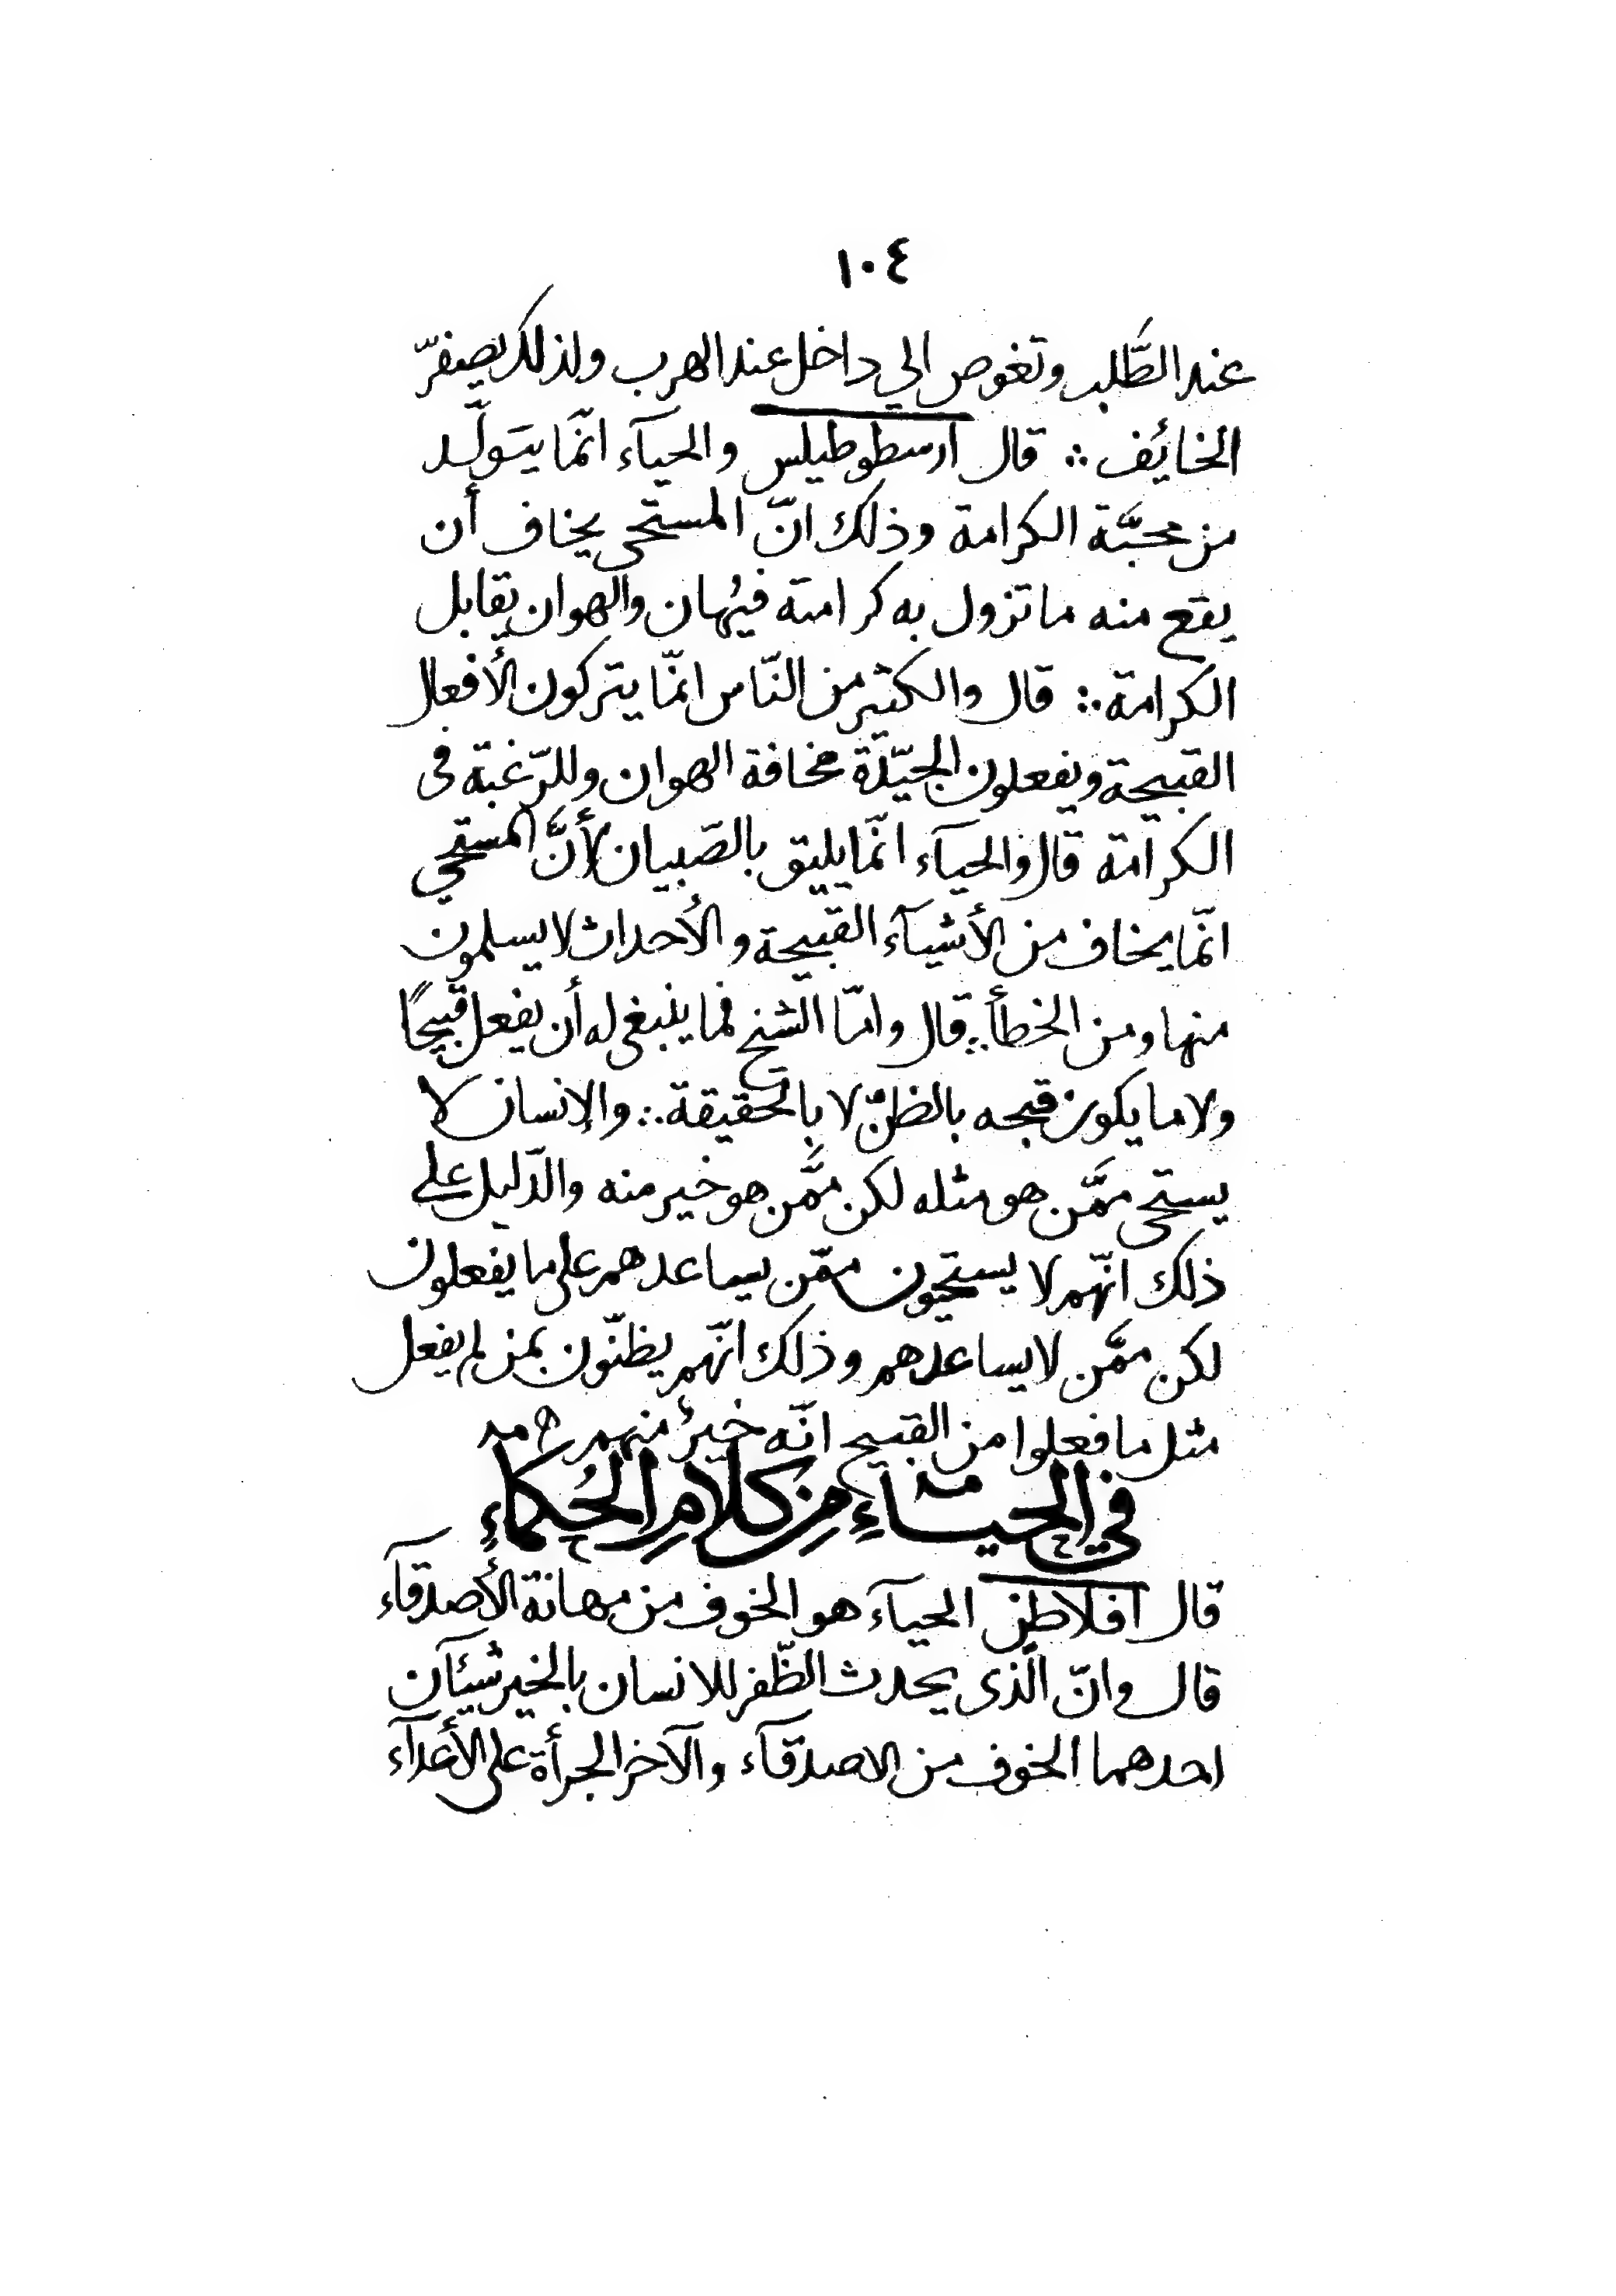 ١٠٤
عند الطّلب وتغوص الي داخل عند الهرب ولذلك يصفرّ
الخائف ∴ قال ارسطوطيلس والحيآء انّما يتولّد
من محبّة الكرامة وذلك انّ المستحى يخاف أن
يقع منه ما تزول به كرامته فيُهان والهوان يقابل
الكرامة ∴ قال والكثير من النّاس انّما يتركون الأفعال
القبيحة ويفعلون الجيّدة مخافة الهوان وللرّغبة فى
الكرامة قال والحيآء انّما يليق بالصّبيان لأنَّ المستحي
انّما يخاف من الأشيآء القبيحة والأحداث لا يسلمون
منها ومن الخطأ ∴ قال وامّا الشيخ فما ينبغى له أن يفعل قبيحًا
ولا ما يكون قبحه بالظنّ لا بالحقيقة ∴ والإنسان لا
يستحى ممَّن هو مثله لكن ممَّن هو خير منه والدّليل علي
ذلك انّهم لا يستحيون ممّن يساعدهم على ما يفعلون
لكن ممَّن لا يساعدهم وذلك انّهم يظنّون بمن لم يفعل
مثل ما فعلوا من القبيح انّه خيرٌ منهم
في الحيـاءِ مِن كلامِ الحُكماءِ
قال افلاطن الحيآء هو الخوف من مهانة الأصدقآء
قال وانّ الّذى يحدث الظّفر للانسان بالخير شيئآن
احدهما الخوف من الاصدقآء والآخر الجرأة على الأعدآء